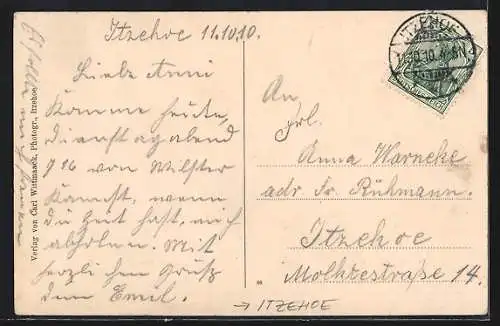 Itzehoe 11.10.10.
Liebe Anni
Komme heute,
Dienstag abend
9 16 von Wilster
kannst, wenn
du Zeit hast, mich
abholen. Mit
herzlichen Gruß
dein Emil.
Verlag von Carl Wittmaack, Photogr., Itzehoe.
ITZEHOE
11.10.10. 4-5N
An
Frl.
Anna Warneke
adr Fr. Rühmann.
Itzehoe
Molktestraße 14.
→ ITZEHOE